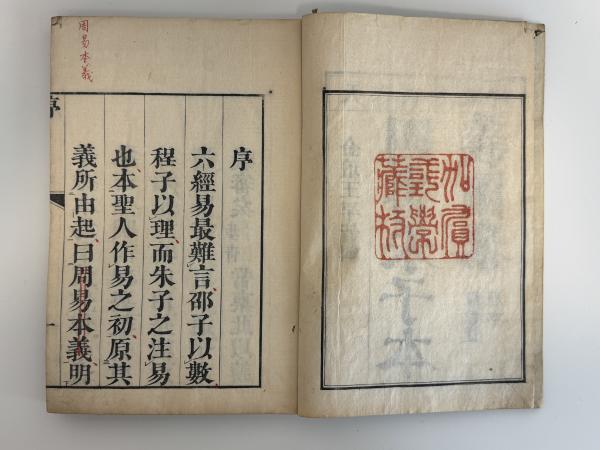 加賀
國學
藏板
序
六經易最難言邵子以數
程子以理而朱子之注易
也本聖人作易之初原其
義所由起曰周易本義明
周易本義
序